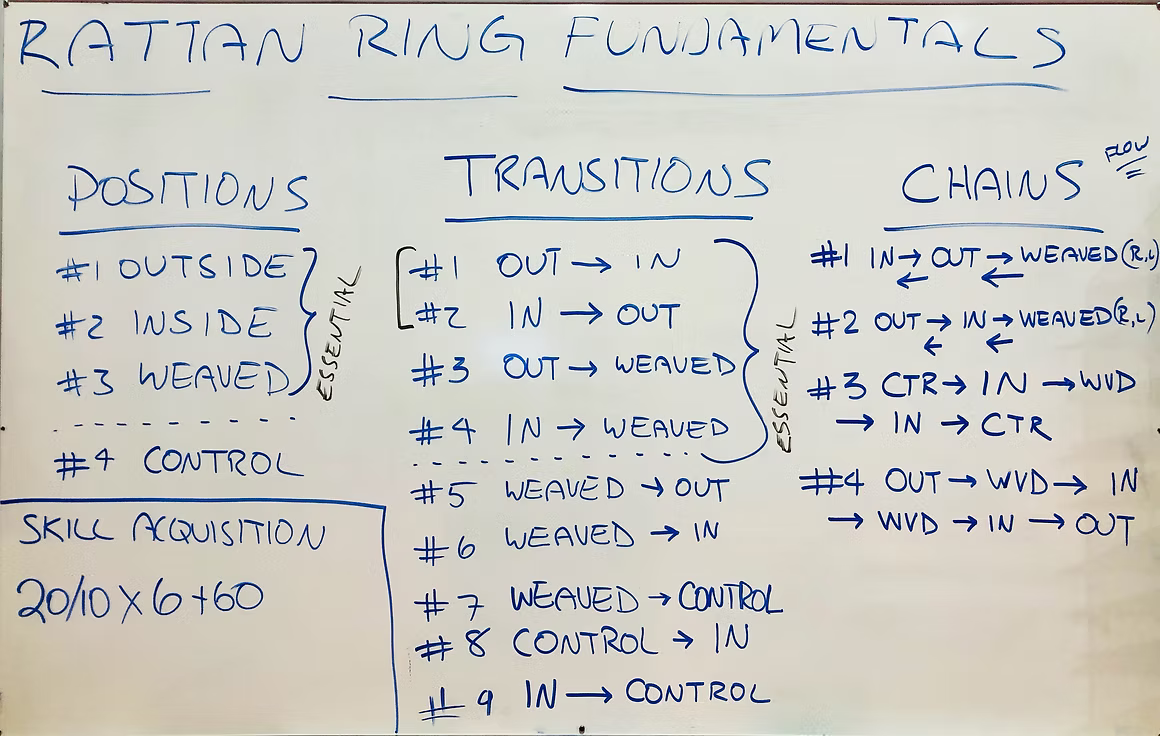 RATTAN RING FUNDAMENTALS
POSITIONS
#1 OUTSIDE
#2 INSIDE
#3 WEAVED
ESSENTIAL
#4 CONTROL
SKILL ACQUISITION
20/10 x 6 + 60
TRANSITIONS
#1 OUT → IN
#2 IN → OUT
#3 OUT → WEAVED
#4 IN → WEAVED
ESSENTIAL
#5 WEAVED → OUT
#6 WEAVED → IN
#7 WEAVED → CONTROL
#8 CONTROL → IN
#9 IN → CONTROL
CHAINS
FLOW
#1 IN → OUT → WEAVED (R,L)
← ←
#2 OUT → IN → WEAVED (R,L)
← ←
#3 CTR → IN → WVD
→ IN → CTR
#4 OUT → WVD → IN
→ WVD → IN → OUT